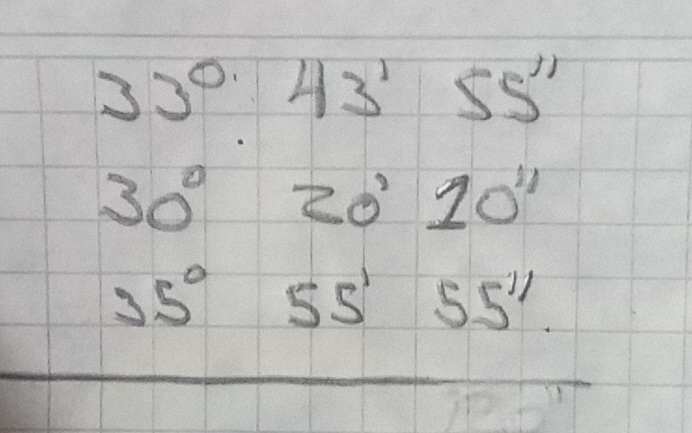 33° 43' 55"
30° 20' 10"
35° 55' 55"